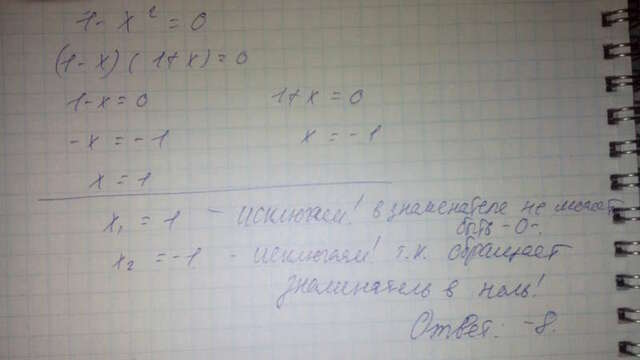 1 - x² = 0
(1 - x)(1 + x) = 0
1 - x = 0 1 + x = 0
- x = - 1 x = - 1
x = 1
x₁ = 1 - исключаем! в знаменателе не может
быть -0-.
x₂ = -1 - исключаем! т.к. обращает
знаминатель в ноль!
Ответ: -8.